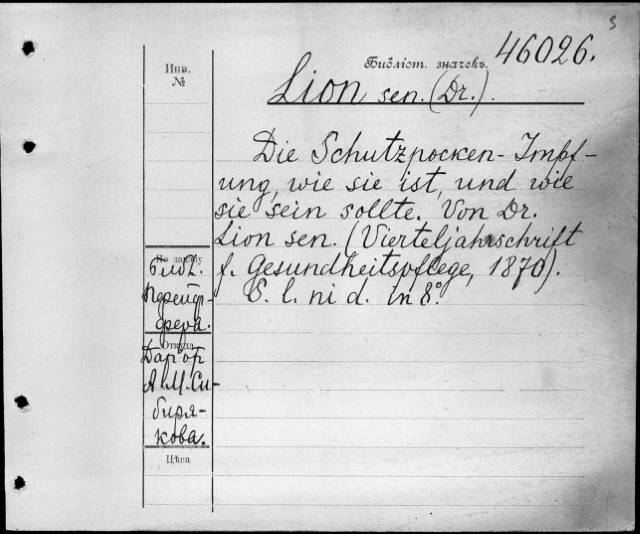 3
46026.
Библіот. значекъ.
Инв.
№
Lion sen. (Dr.).
Die Schutzpocken-Impf-
ung, wie sie ist, und wie
sie sein sollte. Von Dr.
Lion sen. (Vierteljahrsschrift
f. Gesundheitspflege, 1870).
S. l. ni d. in 8°.
По заказу
Библ.
Пфейф-
фера.
Откуда
Дар от
А. М. Си-
биря-
кова.
Цѣна